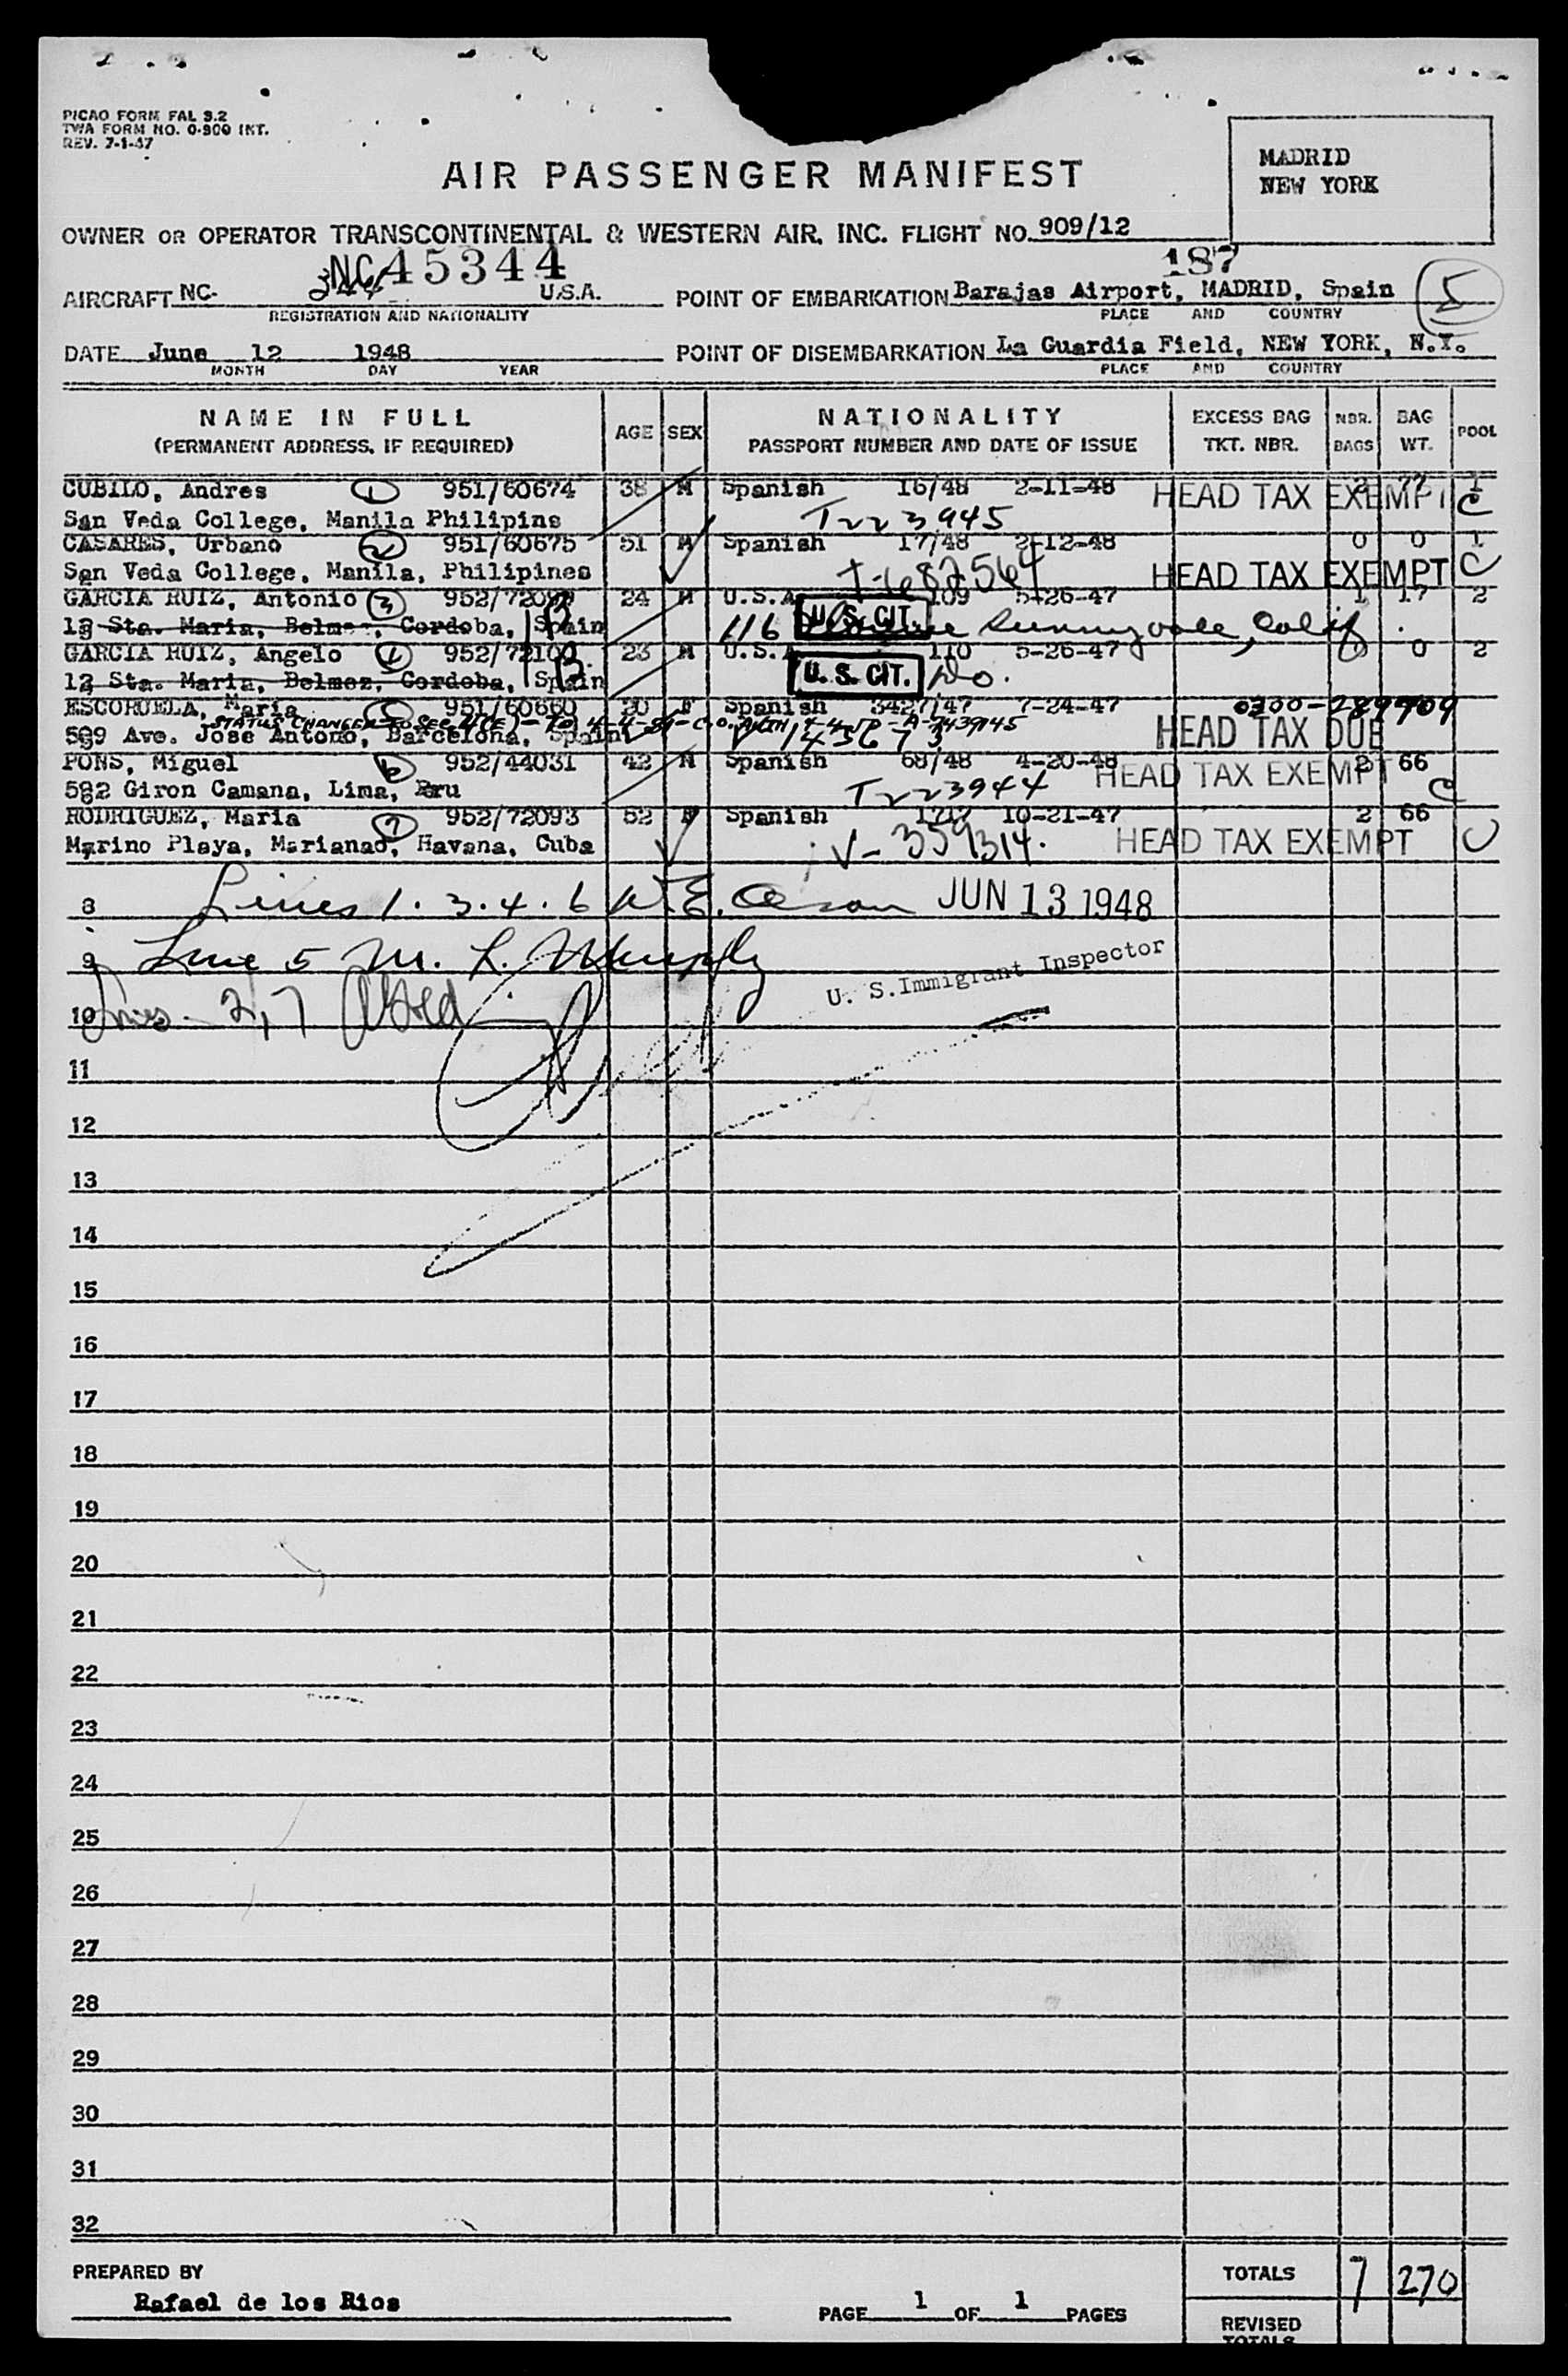 PICAO FORM FAL 3.2
TWA FORM NO. 0-900 INT.
REV. 7-1-47
MADRID
NEW YORK
AIR PASSENGER MANIFEST
OWNER OR OPERATOR TRANSCONTINENTAL & WESTERN AIR, INC. FLIGHT NO. 909/12
187
NC45344
AIRCRAFT NC- 344 U.S.A. POINT OF EMBARKATION Barajas Airport, MADRID, Spain 5
REGISTRATION AND NATIONALITY PLACE AND COUNTRY
DATE June 12 1948 POINT OF DISEMBARKATION La Guardia Field, NEW YORK, N.Y.
MONTH DAY YEAR PLACE AND COUNTRY
NAME IN FULL AGE SEX NATIONALITY EXCESS BAG NBR. BAG POOL
(PERMANENT ADDRESS, IF REQUIRED) PASSPORT NUMBER AND DATE OF ISSUE TKT. NBR. BAGS WT.
CUBILO, Andres 1 951/60674 38 M Spanish 16/48 2-11-48 HEAD TAX EXEMPT 77 1
San Veda College, Manila Philipins T223945 C
CASARES, Urbano 2 951/60675 51 M Spanish 17/48 2-12-48 0 0 1
San Veda College, Manila, Philipines T-682564 HEAD TAX EXEMPT C
GARCIA RUIZ, Antonio 3 952/72099 24 M U.S.A. 109 5-26-47 1 17 2
13 Sta. Maria, Belmez, Cordoba, Spain U.S. CIT. 116 Sunnyvale, Calif.
GARCIA RUIZ, Angelo 4 952/72100 23 M U.S.A. 110 5-26-47 0 0 2
12 Sta. Maria, Belmez, Cordoba, Spain U. S. CIT. Do.
ESCORUELA, Maria 5 951/60660 20 F Spanish 3427/47 7-24-47 0300-289909
STATUS CHANGED TO SEC 4(E)
509 Ave. Jose Antono, Barcelona, Spain V 1436 73 HEAD TAX DUE
PONS, Miguel 6 952/44031 42 M Spanish 68/48 4-20-48 HEAD TAX EXEMPT 2 66
592 Giron Camana, Lima, Peru T223944 C
RODRIGUEZ, Maria 7 952/72093 52 F Spanish 1717 10-21-47 2 66
Marino Playa, Marianao, Havana, Cuba V-359314. HEAD TAX EXEMPT C
8 Lines 1. 3. 4. 6 W. E. JUN 13 1948
9 Line 5 M. L. Murphy
U. S. Immigrant Inspector
10 Lines 2, 7
11
12
13
14
15
16
17
18
19
20
21
22
23
24
25
26
27
28
29
30
31
32
PREPARED BY TOTALS 7 270
Rafael de los Rios
PAGE 1 OF 1 PAGES
REVISED
TOTALS